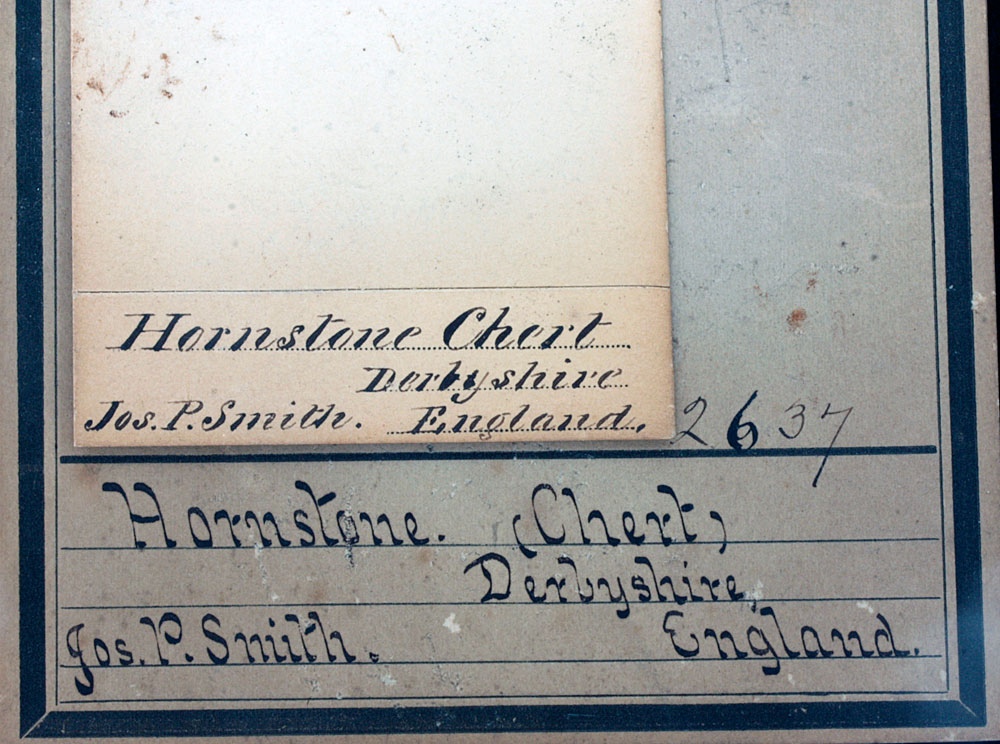 Hornstone Chert
Derbyshire
Jos. P. Smith. England.
2637
Hornstone. (Chert)
Derbyshire,
Jos. P. Smith. England.